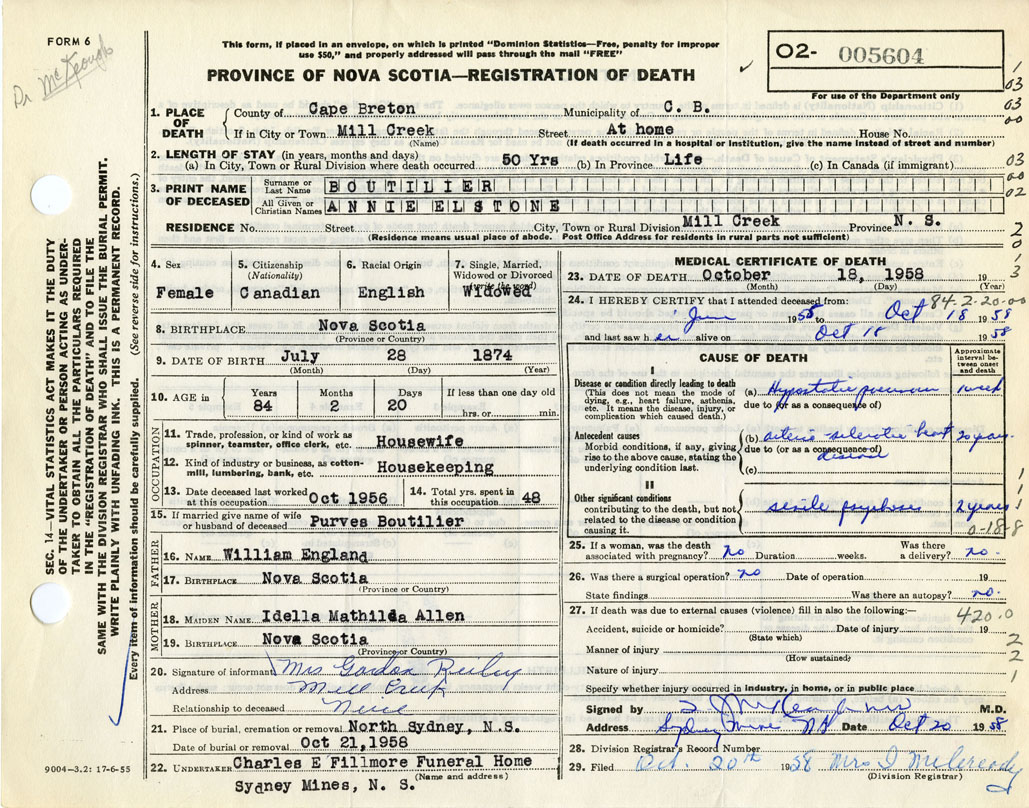 FORM 6
Dr McKeough
This form, if placed in an envelope, on which is printed "Dominion Statistics—Free, penalty for improper
use $50," and properly addressed will pass through the mail "FREE"
PROVINCE OF NOVA SCOTIA—REGISTRATION OF DEATH
O2- 005604
For use of the Department only
SEC. 14—VITAL STATISTICS ACT MAKES IT THE DUTY
OF THE UNDERTAKER OR PERSON ACTING AS UNDER-
TAKER TO OBTAIN ALL THE PARTICULARS REQUIRED
IN THE "REGISTRATION OF DEATH" AND TO FILE THE
SAME WITH THE DIVISION REGISTRAR WHO SHALL ISSUE THE BURIAL PERMIT.
WRITE PLAINLY WITH UNFADING INK. THIS IS A PERMANENT RECORD.
Every item of information should be carefully supplied. (See reverse side for instructions.)
1. PLACE OF DEATH
County of Cape Breton Municipality of C. B.
If in City or Town Mill Creek Street At home House No.
(Name) (If death occurred in a hospital or institution, give the name instead of street and number)
2. LENGTH OF STAY (in years, months and days)
(a) In City, Town or Rural Division where death occurred 50 Yrs (b) In Province Life (c) In Canada (if immigrant)
3. PRINT NAME OF DECEASED
Surname or Last Name BOUTILIER
All Given or Christian Names ANNIE ELSTONE
RESIDENCE No. Street City, Town or Rural Division Mill Creek Province N. S.
(Residence means usual place of abode. Post Office Address for residents in rural parts not sufficient)
4. Sex
Female
5. Citizenship
(Nationality)
Canadian
6. Racial Origin
English
7. Single, Married,
Widowed or Divorced
(write the word)
Widowed
8. BIRTHPLACE Nova Scotia
(Province or Country)
9. DATE OF BIRTH July 28 1874
(Month) (Day) (Year)
10. AGE in
Years 84
Months 2
Days 20
If less than one day old
hrs. or min.
OCCUPATION
11. Trade, profession, or kind of work as
spinner, teamster, office clerk, etc. Housewife
12. Kind of industry or business, as cotton-
mill, lumbering, bank, etc. Housekeeping
13. Date deceased last worked
at this occupation Oct 1956
14. Total yrs. spent in
this occupation 48
15. If married give name of wife
or husband of deceased Purves Boutilier
FATHER
16. NAME William England
17. BIRTHPLACE Nova Scotia
(Province or Country)
MOTHER
18. MAIDEN NAME Idella Mathilda Allen
19. BIRTHPLACE Nova Scotia
(Province or Country)
20. Signature of informant Mrs Gordon
Address Mill Creek
Relationship to deceased Niece
21. Place of burial, cremation or removal North Sydney, N.S.
Date of burial or removal Oct 21,1958
22. UNDERTAKER Charles E Fillmore Funeral Home
(Name and address)
Sydney Mines, N. S.
9004-3.2: 17-6-55
MEDICAL CERTIFICATE OF DEATH
23. DATE OF DEATH October 18, 1958 19
(Month) (Day) (Year)
84-2-20-00
24. I HEREBY CERTIFY that I attended deceased from:
June 1958 Oct 18 1958
and last saw her alive on Oct 18 1958
CAUSE OF DEATH
Approximate interval between onset and death
I
Disease or condition directly leading to death
(This does not mean the mode of
dying, e.g., heart failure, asthenia,
etc. It means the disease, injury, or
complication which caused death.)
(a) Hypostatic pneumonia 1 week
due to (or as a consequence of)
Antecedent causes
Morbid conditions, if any, giving
rise to the above cause, stating the
underlying condition last.
(b) arterio sclerotic heart 20 years
due to (or as a consequence of)
disease
(c)
II
Other significant conditions
contributing to the death, but not
related to the disease or condition
causing it.
senile psychoses 2 years
0-18-8
25. If a woman, was the death
associated with pregnancy? no Duration weeks. Was there
a delivery? no.
26. Was there a surgical operation? no Date of operation 19
State findings Was there an autopsy? no.
27. If death was due to external causes (violence) fill in also the following:—
420.0
Accident, suicide or homicide? Date of injury 19
(State which)
Manner of injury
(How sustained)
Nature of injury
Specify whether injury occurred in industry, in home, or in public place
Signed by M.D.
Address Sydney Mines NS Date Oct 20 1958
28. Division Registrar's Record Number
29. Filed Oct. 20th 1958 Mrs I McCready
(Division Registrar)
1
03
03
00
03
00
02
2
0
1
3
1
1
1
2
2
1